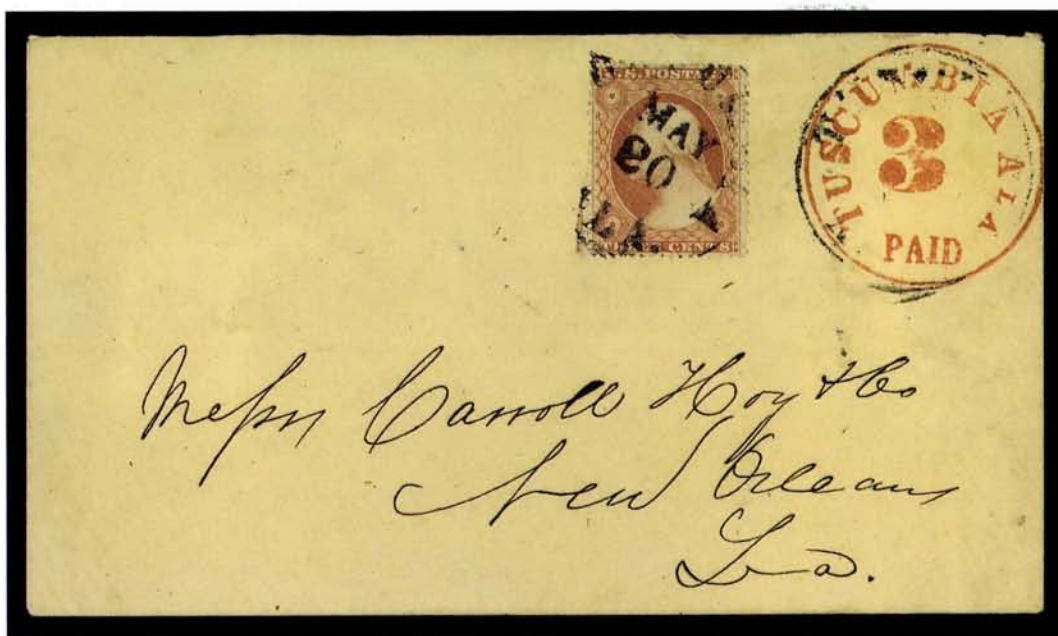 U.S. POSTAGE
MAY
20
ALA
THREE CENTS
TUSCUMBIA ALA
3
PAID
Messrs Carroll Hoy & Co
New Orleans
La.